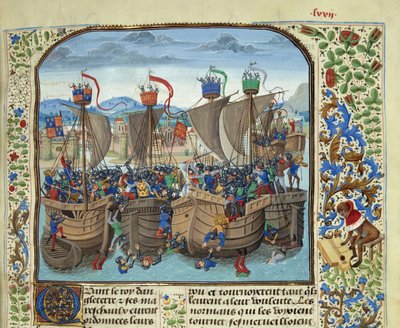 lxvii.
Quant le roy dan
gleterre & ses ma
reschaulx eurent
ordonnees leurs
et tournoyerent tant
leurent a leur voulente. Les
normans qui les veoient
tourner sesmerueilloient